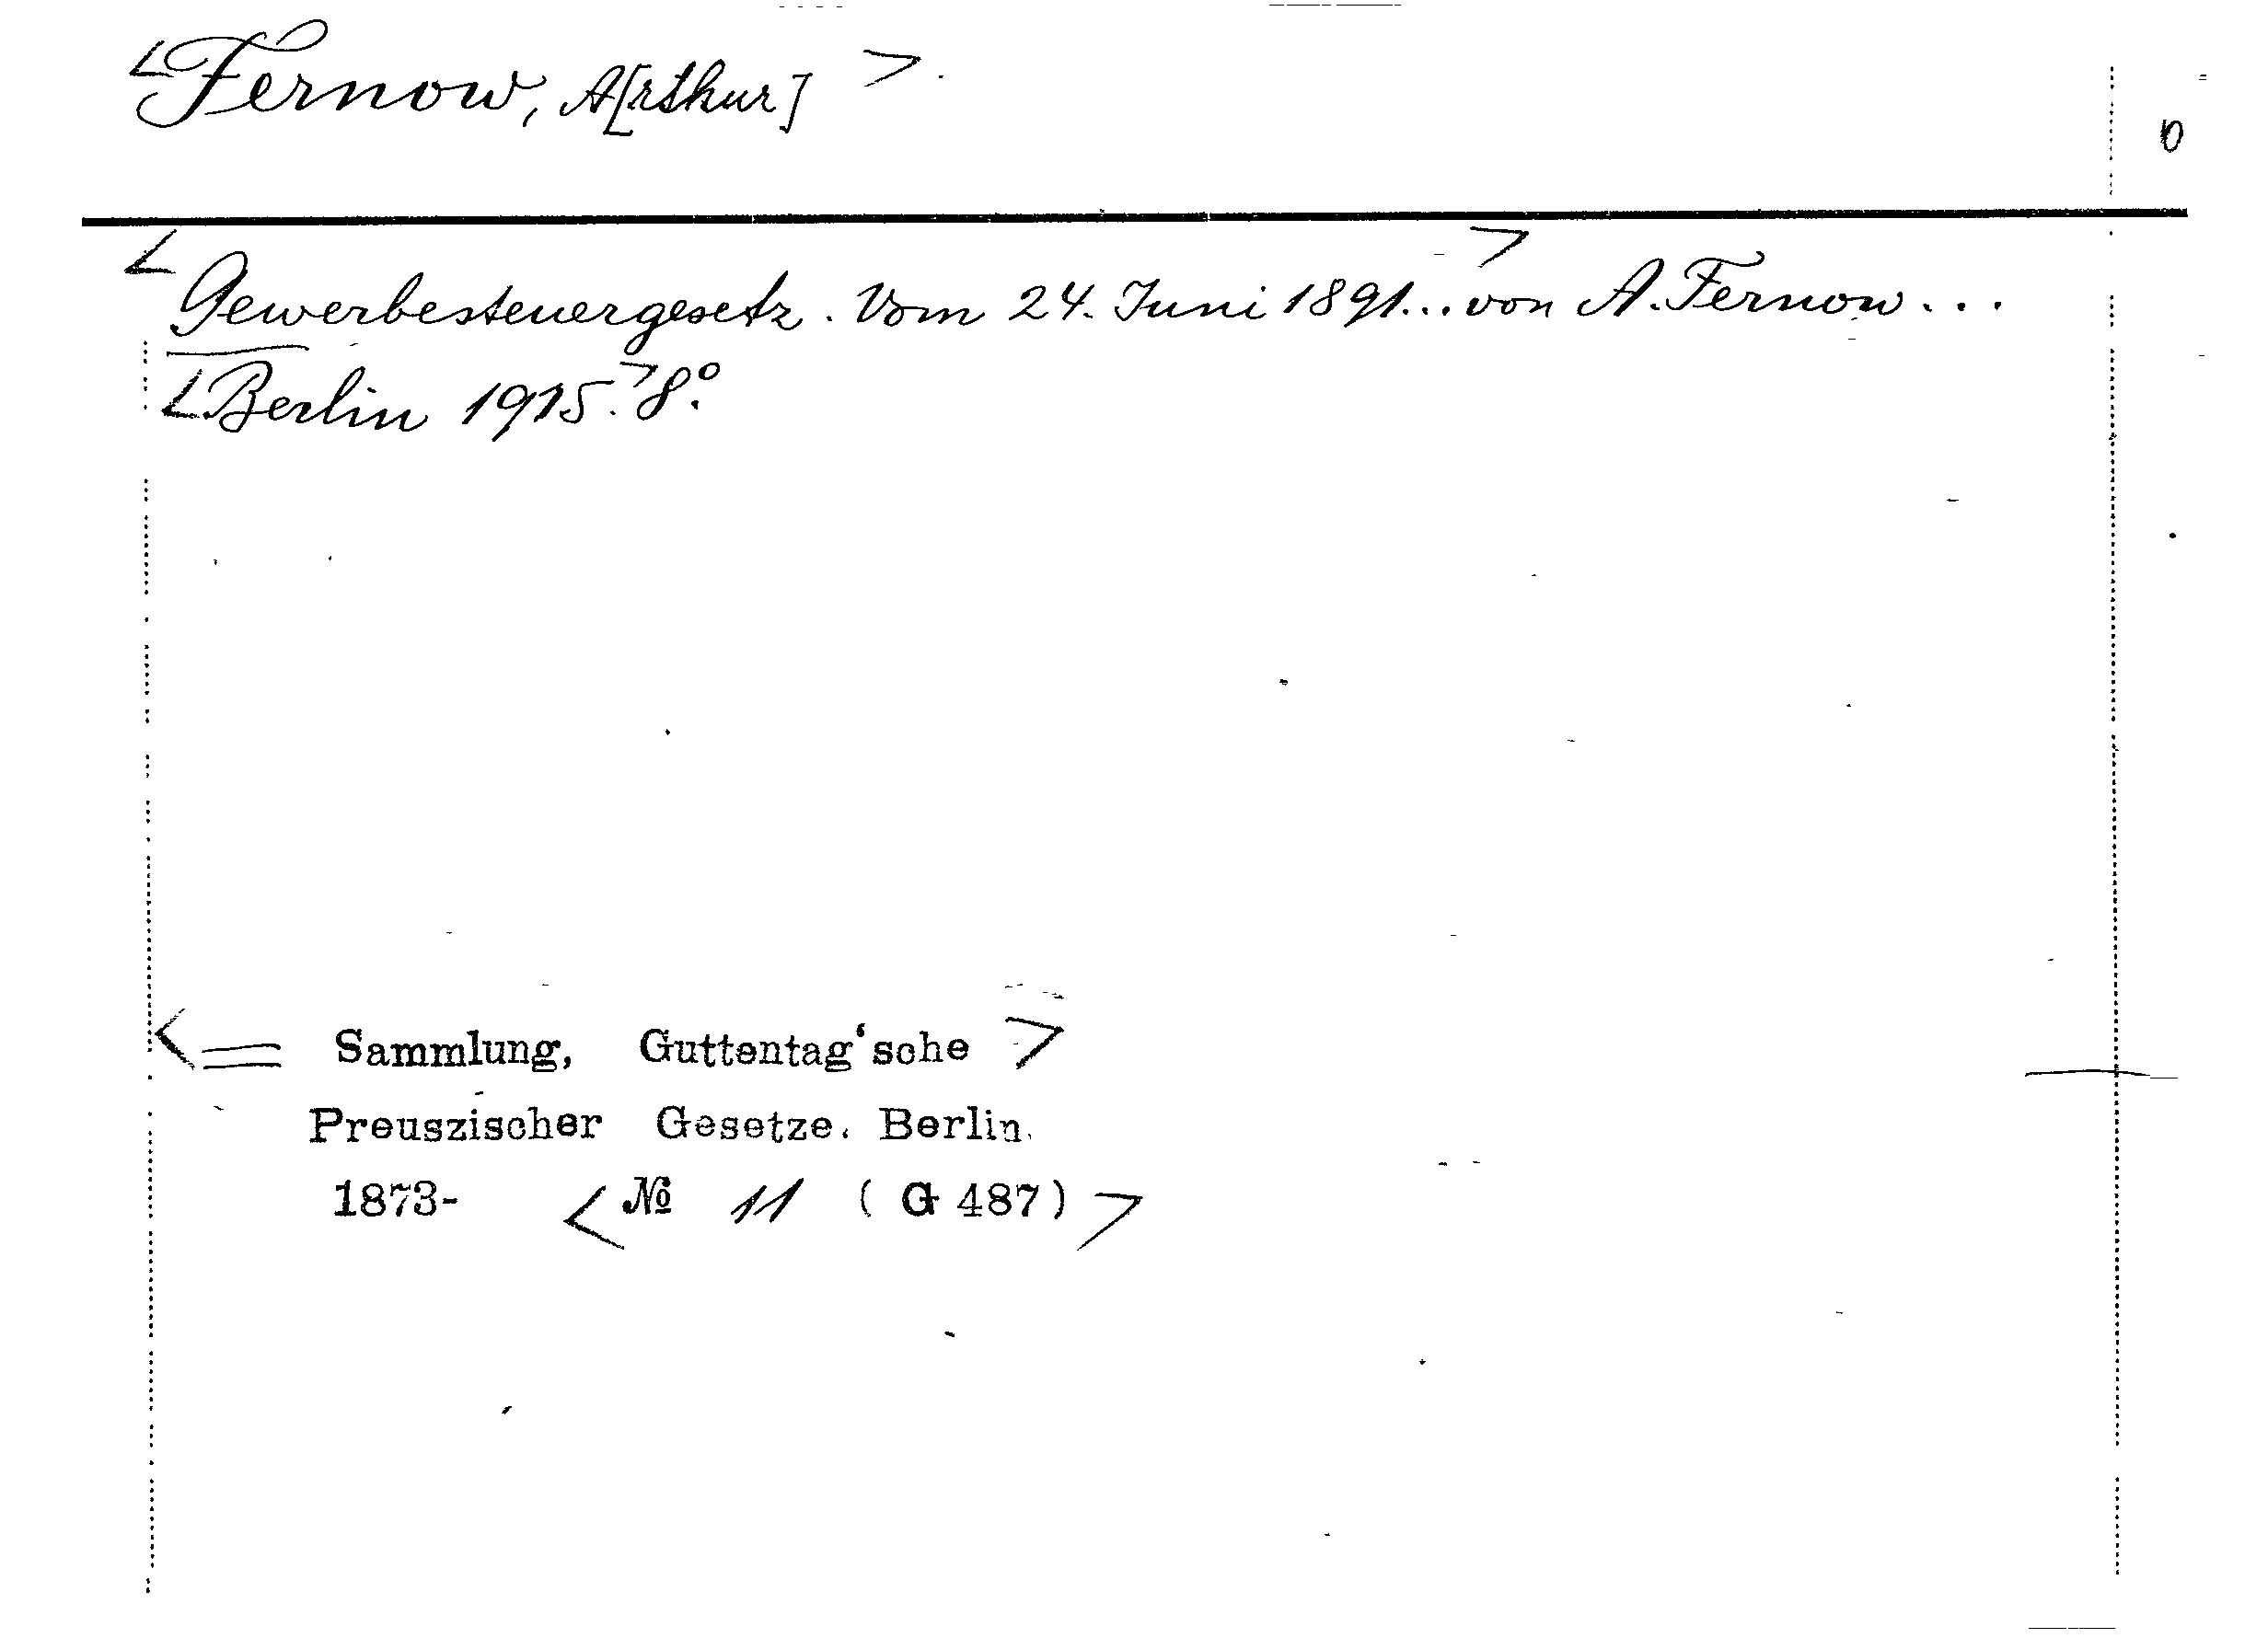 <Fernow, A[rthur]>
<Gewerbesteuergesetz. Vom 24. Juni 1891...> von A. Fernow...
<Berlin 1915.> 8°.
<= Sammlung, Guttentag'sche>
Preuszischer Gesetze. Berlin.
1873- <№ 11 (G 487)>